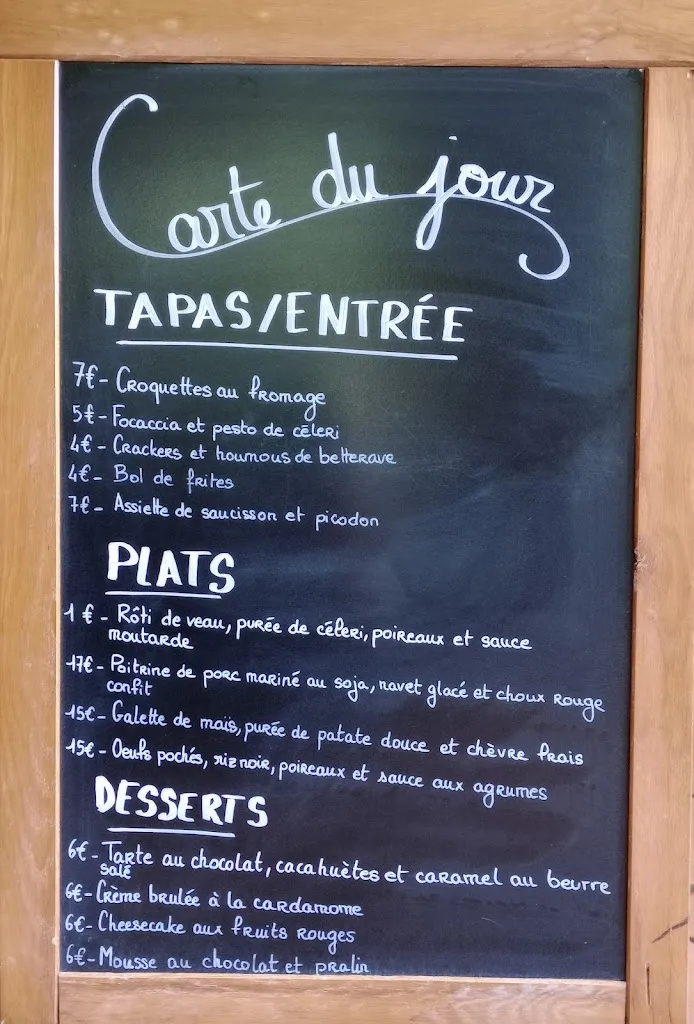 Carte du jour
TAPAS/ENTRÉE
7€- Croquettes au fromage
5€- Focaccia et pesto de céleri
4€- Crackers et houmous de betterave
4€- Bol de frites
7€- Assiette de saucisson et picodon
PLATS
1 €- Rôti de veau, purée de céleri, poireaux et sauce
moutarde
17€- Poitrine de porc mariné au soja, navet glacé et choux rouge
confit
15€- Galette de maïs, purée de patate douce et chèvre frais
15€- Oeufs pochés, riz noir, poireaux et sauce aux agrumes
DESSERTS
6€- Tarte au chocolat, cacahuètes et caramel au beurre
salé
6€- Crème brulée à la cardamome
6€- Cheesecake aux fruits rouges
6€- Mousse au chocolat et pralin